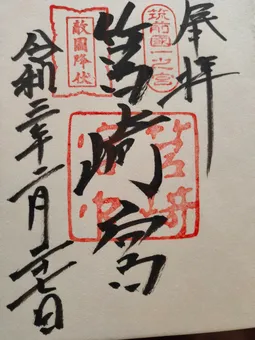 奉拝
筑前國一之宮
筥崎宮
筥崎
敵國降伏
令和三年二月廿七日